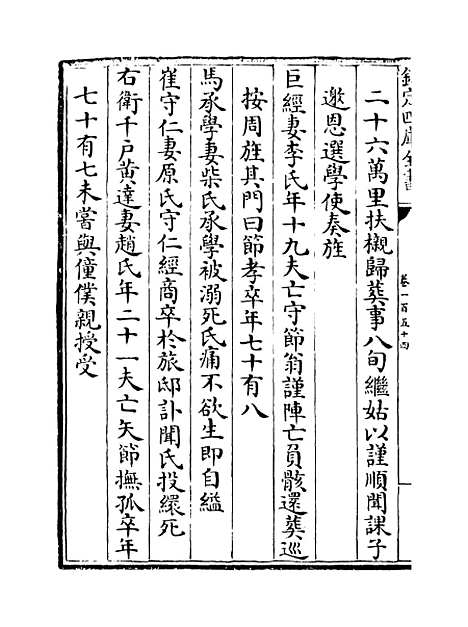 欽定四庫全書
卷一百五十四
二十六萬里扶櫬歸葬事八旬繼姑以謹順聞課子
邀恩選學使奏旌
巨經妻李氏年十九夫亡守節翁謹陣亡員骸還葬巡
按周旌其門曰節孝卒年七十有八
馬承學妻柴氏承學被溺死氏痛不欲生即自縊
崔守仁妻原氏守仁經商卒於旅邸訃聞氏投繯死
右衛千戸黄達妻趙氏年二十一夫亡矢節撫孤卒年
七十有七未嘗與僮僕親授受